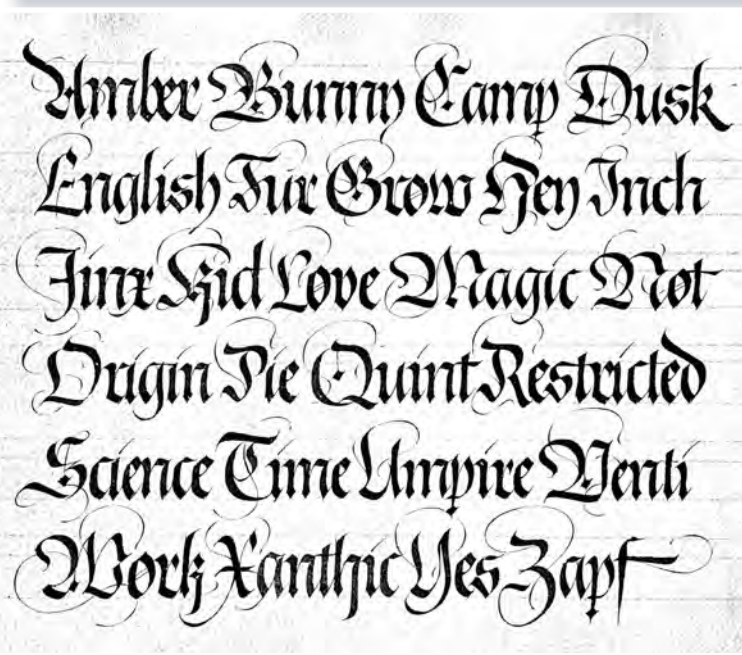 Amber Bunny Camp Dusk
English Fur Grow Hey Inch
Jinx Kid Love Magic Not
Origin Pie Quint Restricted
Science Time Umpire Venti
Work Xanthic Yes Zapf